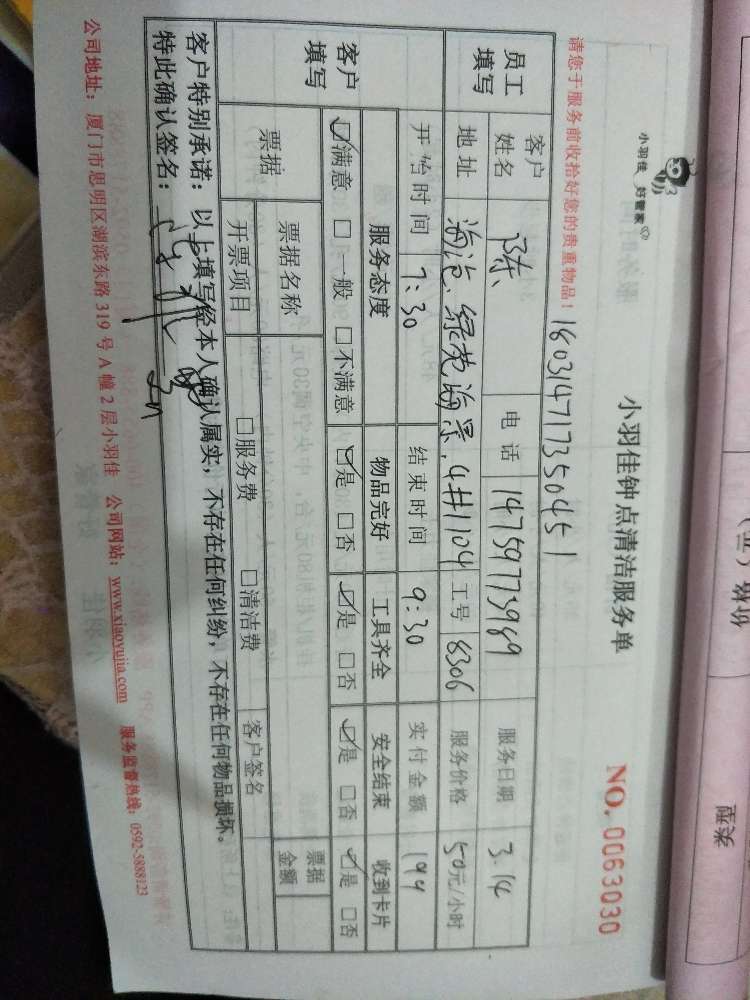 小羽佳 好管家
小羽佳钟点清洁服务单
NO. 0063030
请您于服务前收拾好您的贵重物品！ 180314717350451
员工填写 客户姓名 陈 电话 14759773989 服务日期 3.14
地址 海沧、绿苑海景.4#1104 工号 8306 服务价格 50元/小时
开始时间 7:30 结束时间 9:30 实付金额 194
客户填写 服务态度 物品完好 工具齐全 安全结束 收到卡片
☑满意 □一般 □不满意 ☑是 □否 ☑是 □否 ☑是 □否 ☑是 □否
票据 票据名称 票据金额
开票项目 □服务费 □清洁费 客户签名
客户特别承诺：以上填写经本人确认属实，不存在任何纠纷，不存在任何物品损坏。
特此确认签名：
公司地址：厦门市思明区湖滨东路319号A幢2层小羽佳 公司网站：www.xiaoyujia.com 服务监督热线：0592-5888123